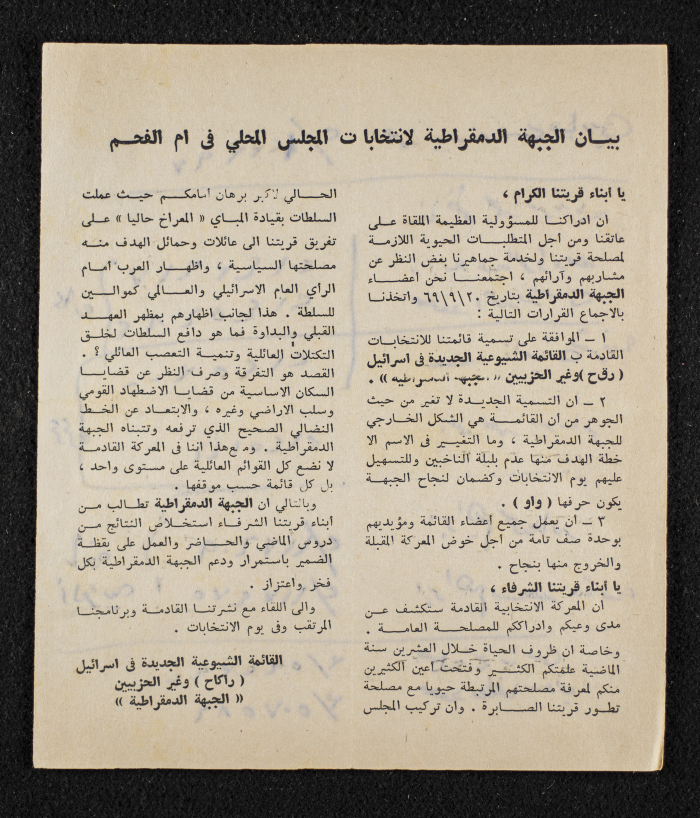 بيان الجبهة الدمقراطية لانتخابات المجلس المحلي في ام الفحم
يا أبناء قريتنا الكرام ،
ان ادراكنا للمسؤولية العظيمة الملقاة على
عاتقنا ومن أجل المتطلبات الحيوية اللازمة
لمصلحة قريتنا ولخدمة جماهيرنا بغض النظر عن
مشاربهم وآرائهم ، اجتمعنا نحن اعضاء
الجبهة الدمقراطية بتاريخ ٦٩/٩/٢٠ واتخذنا
بالاجماع القرارات التالية :
١ – الموافقة على تسمية قائمتنا للانتخابات
القادمة ب القائمة الشيوعية الجديدة في اسرائيل
( رقح ) وغير الحزبيين « الجبهة الدمقراطية » .
٢ – ان التسمية الجديدة لا تغير من حيث
الجوهر من ان القائمة هي الشكل الخارجي
للجبهة الدمقراطية ، وما التغيير في الاسم الا
خطة الهدف منها عدم بلبلة الناخبين وللتسهيل
عليهم يوم الانتخابات وكضمان لنجاح الجبهة
يكون حرفها ( واو ) .
٣ – ان يعمل جميع أعضاء القائمة ومؤيديهم
بوحدة صف تامة من أجل خوض المعركة المقبلة
والخروج منها بنجاح .
يا أبناء قريتنا الشرفاء ،
ان المعركة الانتخابية القادمة ستكشف عن
مدى وعيكم وادراككم للمصلحة العامة .
وخاصة ان ظروف الحياة خلال العشرين سنة
الماضية علمتكم الكثير وفتحت أعين الكثيرين
منكم لمعرفة مصلحتهم المرتبطة حيويا مع مصلحة
تطور قريتنا الصابرة . وان تركيب المجلس
الحالي لاكبر برهان أمامكم حيث عملت
السلطات بقيادة المباي « المعراخ حاليا » على
تفريق قريتنا الى عائلات وحمائل الهدف منه
مصلحتها السياسية ، واظهار العرب أمام
الرأي العام الاسرائيلي والعالمي كموالين
للسلطة . هذا لجانب اظهارهم بمظهر العهد
القبلي والبداوة فما هو دافع السلطات لخلق
التكتلات العائلية وتنمية التعصب العائلي ؟ .
القصد هو التفرقة وصرف النظر عن قضايا
السكان الاساسية من قضايا الاضطهاد القومي
وسلب الاراضي وغيره ، والابتعاد عن الخط
النضالي الصحيح الذي ترفعه وتتبناه الجبهة
الدمقراطية . ومع هذا اننا في المعركة القادمة
لا نضع كل القوائم العائلية على مستوى واحد ،
بل كل قائمة حسب موقفها .
وبالتالي ان الجبهة الدمقراطية تطالب من
أبناء قريتنا الشرفاء استخلاص النتائج من
دروس الماضي والحاضر والعمل على يقظة
الضمير باستمرار ودعم الجبهة الدمقراطية بكل
فخر واعتزاز .
والى اللقاء مع نشرتنا القادمة وبرنامجنا
المرتقب وفي يوم الانتخابات .
القائمة الشيوعية الجديدة في اسرائيل
( راكاح ) وغير الحزبيين
« الجبهة الدمقراطية »